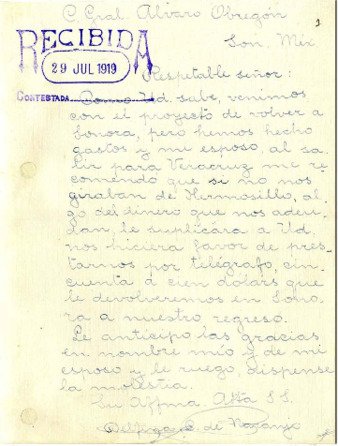 C. Gral. Alvaro Obregón
Son. Mex.
RECIBIDA
29 JUL 1919
CONTESTADA
Respetable señor:
Como Ud. sabe, venimos
con el proyecto de volver a
Sonora, pero hemos hecho
gastos y mi esposo al sa-
lir para Veracruz me re-
comendó que si no nos
giraban de Hermosillo, al-
go del dinero que nos adeu-
dan, le suplicára a Ud.
nos hiciera favor de pres-
tarnos por telégrafo, cin-
cuenta á cien dólars que
le devolveremos en Sono-
ra a nuestro regreso.
Le anticipo las gracias
en nombre mío y de mi
esposo y le ruego, dispense
la molestia.
Su Affma. Atta S.S.
de